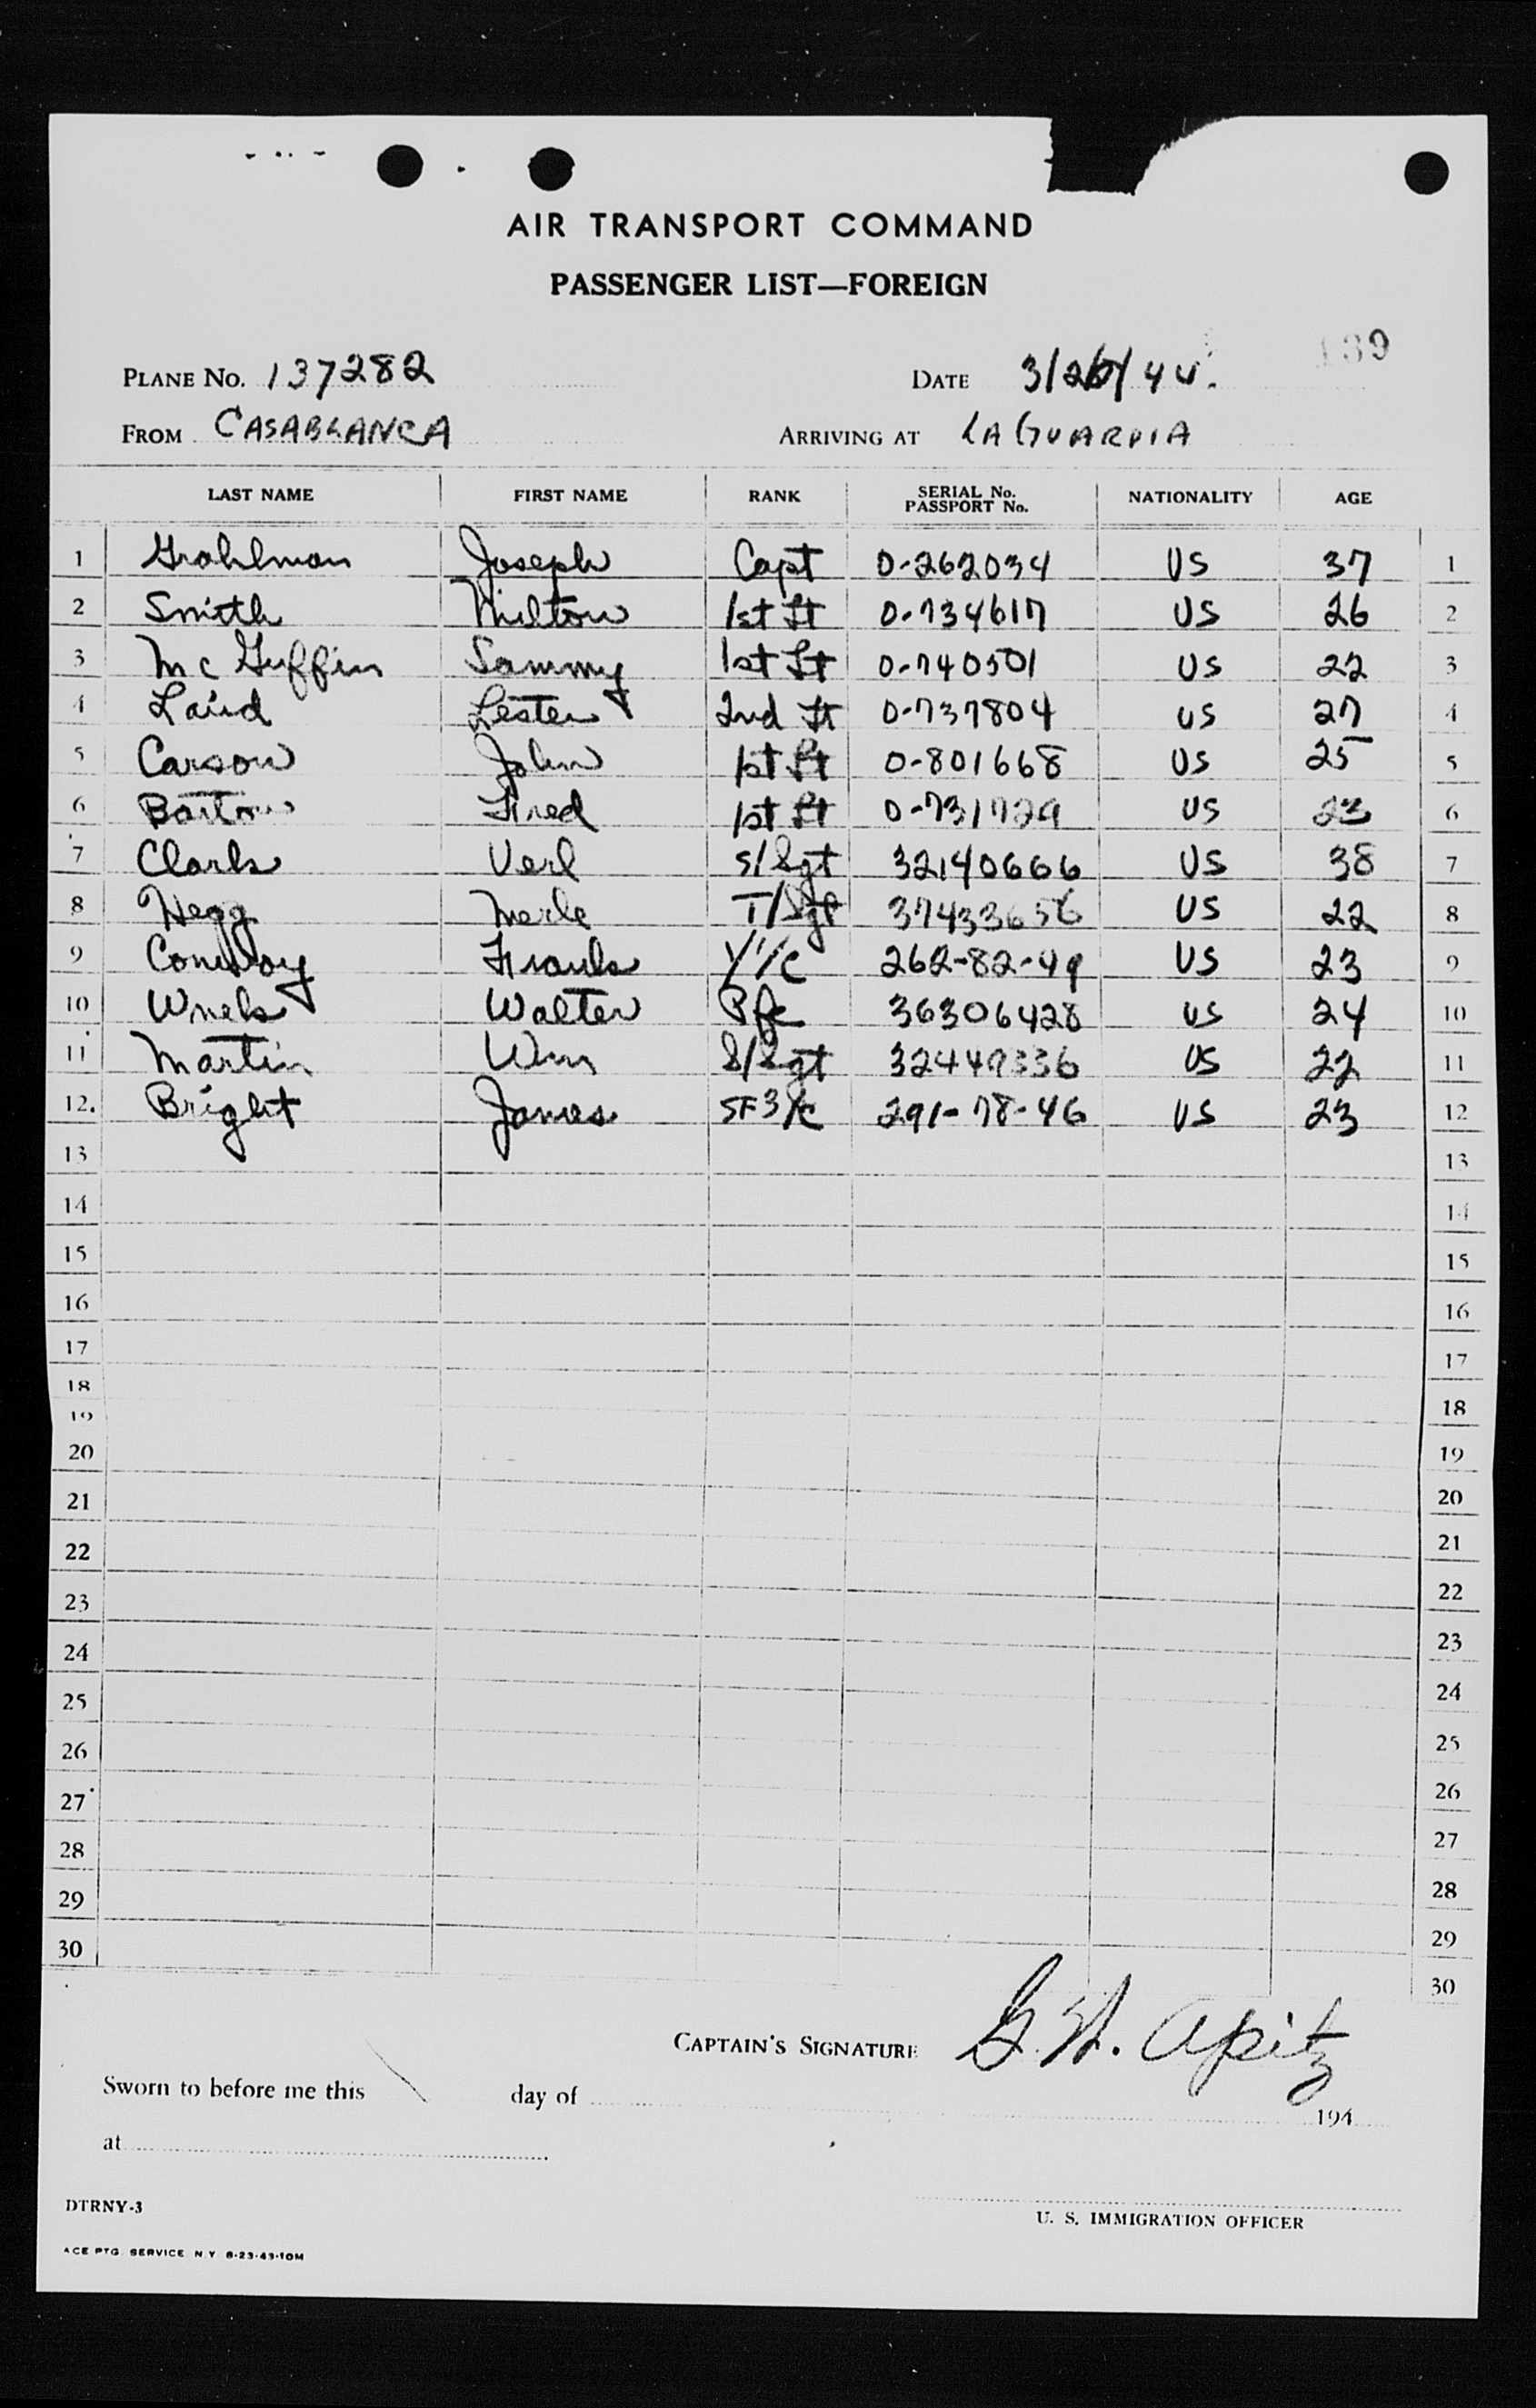 139
AIR TRANSPORT COMMAND
PASSENGER LIST—FOREIGN
PLANE No. 137282 DATE 3/26/44.
FROM CASABLANCA ARRIVING AT LA GUARDIA
LAST NAME FIRST NAME RANK SERIAL No. PASSPORT No. NATIONALITY AGE
1 Grohlman Joseph Capt O-262034 US 37 1
2 Smith Milton 1st Lt O-734617 US 26 2
3 Mc Guffin Sammy 1st Lt O-740501 US 22 3
4 Laird Lester 2nd Lt O-737804 US 27 4
5 Carson John 1st Lt O-801668 US 25 5
6 Barton Fred 1st Lt O-731729 US 23 6
7 Clark Verl S/Sgt 32140666 US 38 7
8 Hegg Merle T/Sgt 37433656 US 22 8
9 Conway Frank Y1/c 262-82-49 US 23 9
10 Walter Pfc 36306428 US 24 10
11 Martin Wm S/Sgt 32449336 US 22 11
12. Bright James SF3/c 291-78-46 US 23 12
13 13
14 14
15 15
16 16
17 17
18 18
19 19
20 20
21 21
22 22
23 23
24 24
25 25
26 26
27 27
28 28
29 29
30 30
CAPTAIN'S SIGNATURE G. H. Apitz
Sworn to before me this day of 194
at
DTRNY-3
U. S. IMMIGRATION OFFICER
ACE PTG. SERVICE N.Y. 8-23-43-10M